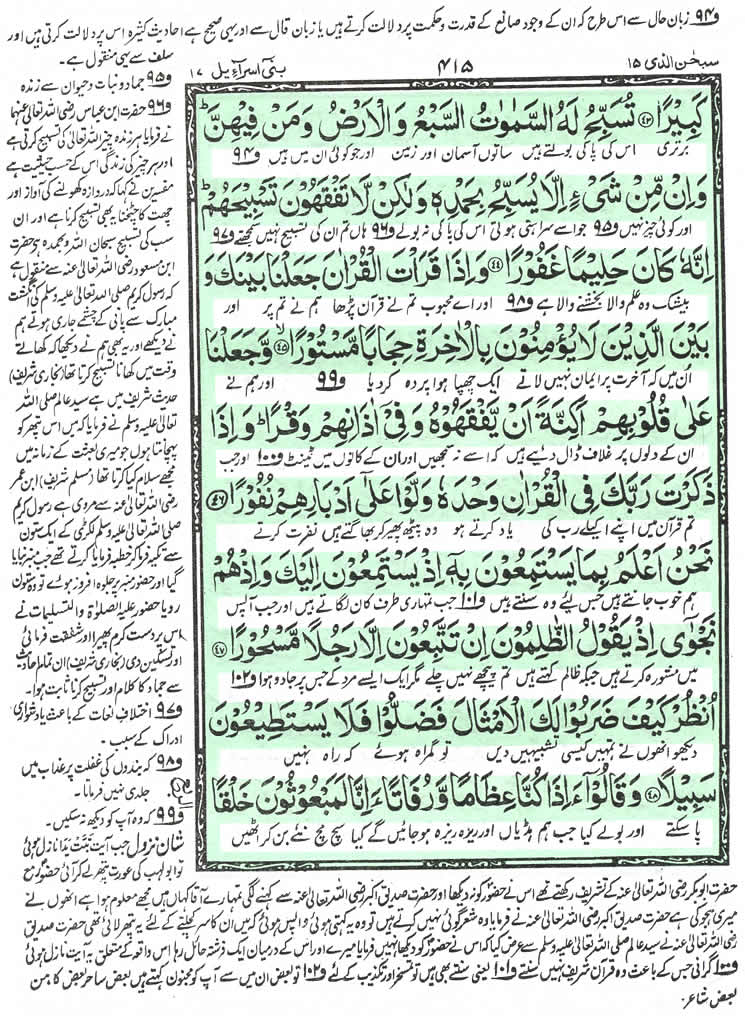 و۹۴ زبان حال سے اس طرح کہ ان کے وجود صانع کے قدرت و حکمت پر دلالت کرتے ہیں یا زبان قال سے اور یہی صحیح ہے احادیث کثیرہ اس پر دلالت کرتی ہیں اور
سلف سے یہی منقول ہے۔
سبحٰن الذی ۱۵
۴۱۵
بنی اسرآءیل ۱۷
كَبِيْرًا ﴿۴۳﴾ تُسَبِّحُ لَهُ السَّمٰوٰتُ السَّبْعُ وَالْاَرْضُ وَمَنْ فِيْهِنَّ ؕ
برتری اس کی پاکی بولتے ہیں ساتوں آسمان اور زمین اور جو کوئی ان میں ہیں و۹۴
وَاِنْ مِّنْ شَیْءٍ اِلَّا يُسَبِّحُ بِحَمْدِهٖ وَلٰكِنْ لَّا تَفْقَهُوْنَ تَسْبِيْحَهُمْ ؕ
اور کوئی چیز نہیں و۹۵ جو اسے سراہتی ہوئی اس کی پاکی نہ بولے و۹۶ ہاں تم ان کی تسبیح نہیں سمجھتے و۹۷
اِنَّهٗ كَانَ حَلِيْمًا غَفُوْرًا ﴿۴۴﴾ وَاِذَا قَرَاْتَ الْقُرْاٰنَ جَعَلْنَا بَيْنَكَ وَ
بیشک وہ حلم والا بخشنے والا ہے و۹۸ اور اے محبوب تم نے قرآن پڑھا ہم نے تم پر اور
بَيْنَ الَّذِيْنَ لَا يُؤْمِنُوْنَ بِالْاٰخِرَةِ حِجَابًا مَّسْتُوْرًا ﴿۴۵﴾ وَّجَعَلْنَا
اُن میں کہ آخرت پر ایمان نہیں لاتے ایک چھپا ہوا پردہ کردیا و۹۹ اور ہم نے
عَلٰی قُلُوْبِهِمْ اَكِنَّةً اَنْ يَّفْقَهُوْهُ وَفِیْۤ اٰذَانِهِمْ وَقْرًا ؕ وَاِذَا
ان کے دلوں پر غلاف ڈال دیے ہیں کہ اسے نہ سمجھیں اور ان کے کانوں میں ٹینٹ و۱۰۰ اور جب
ذَكَرْتَ رَبَّكَ فِی الْقُرْاٰنِ وَحْدَهٗ وَلَّوْا عَلٰۤی اَدْبَارِهِمْ نُفُوْرًا ﴿۴۶﴾
تم قرآن میں اپنے اکیلے رب کی یاد کرتے ہو وہ پیٹھ پھیر کر بھاگتے ہیں نفرت کرتے
نَحْنُ اَعْلَمُ بِمَا يَسْتَمِعُوْنَ بِهٖۤ اِذْ يَسْتَمِعُوْنَ اِلَيْكَ وَاِذْ هُمْ
ہم خوب جانتے ہیں جس لئے وہ سنتے ہیں و۱۰۱ جب تمہاری طرف کان لگاتے ہیں اور جب آپس
نَجْوٰۤی اِذْ يَقُوْلُ الظّٰلِمُوْنَ اِنْ تَتَّبِعُوْنَ اِلَّا رَجُلًا مَّسْحُوْرًا ﴿۴۷﴾
میں مشورہ کرتے ہیں جبکہ ظالم کہتے ہیں تم پیچھے نہیں چلے مگر ایک ایسے مرد کے جس پر جادو ہوا و۱۰۲
اُنْظُرْ كَيْفَ ضَرَبُوْا لَكَ الْاَمْثَالَ فَضَلُّوْا فَلَا يَسْتَطِيْعُوْنَ
دیکھو انھوں نے تمہیں کیسی تشبیہیں دیں تو گمراہ ہوئے کہ راہ نہیں
سَبِيْلًا ﴿۴۸﴾ وَقَالُوْۤا ءَاِذَا كُنَّا عِظَامًا وَّرُفَاتًا ءَاِنَّا لَمَبْعُوْثُوْنَ خَلْقًا
پا سکتے اور بولے کیا جب ہم ہڈیاں اور ریزہ ریزہ ہوجائیں گے کیا سچ مچ نئے بن کر اٹھیں
و۹۵ جماد و نبات و حیوان سے زندہ
و۹۶ حضرت ابن عباس رضی اللہ تعالیٰ عنہما
نے فرمایا ہر زندہ چیز اللہ تعالیٰ کی تسبیح کرتی ہے
اور ہر چیز کی زندگی اس کے حسب حیثیت ہے
مفسرین نے کہا کہ دروازہ کھولنے کی آواز اور
چھت کا چٹخنا یہ بھی تسبیح کرنا ہے اور ان
سب کی تسبیح سبحان اللہ وبحمدہ ہی حضرت
ابن مسعود رضی اللہ تعالیٰ عنہ سے منقول ہے
کہ رسول کریم صلی اللہ تعالیٰ علیہ وسلم کی انگشت
مبارک سے پانی کے چشمے جاری ہوتے ہم
نے دیکھے اور یہ بھی ہم نے دیکھا کہ کھاتے
وقت میں کھانا تسبیح کرتا تھا (بخاری شریف)
حدیث شریف میں ہے سید عالم صلی اللہ
تعالیٰ علیہ وسلم نے فرمایا کہ میں اس پتھر کو
پہچانتا ہوں جو میری بعثت کے زمانہ میں
مجھے سلام کیا کرتا تھا (مسلم شریف) ابن عمر
رضی اللہ تعالیٰ عنہ سے مروی ہے رسول کریم
صلی اللہ تعالیٰ علیہ وسلم لکڑی کے ایک ستون
سے تکیہ فرما کر خطبہ فرمایا کرتے تھے جب منبر بنایا
گیا اور حضور منبر پر جلوہ افروز ہوئے تو وہ ستون
رویا حضور علیہ الصلوٰۃ والتسلیمات نے
اس پر دست کرم پھیرا اور شفقت فرمائی
اور تسکین دی (بخاری شریف) ان تمام احادیث
سے جماد کا کلام اور تسبیح کرنا ثابت ہوا۔
و۹۷ اختلاف لغات کے باعث یا دشواری
ادراک کے سبب۔
و۹۸ کہ بندوں کی غفلت پر عذاب میں
جلدی نہیں فرماتا۔
و۹۹ کہ وہ آپ کو دیکھ نہ سکیں۔
شان نزول جب آیت تَبَّتْ يَدَا نازل ہوئی
تو ابولہب کی عورت پتھر لے کر آئی حضور مع
حضرت ابوبکر رضی اللہ تعالیٰ عنہ کے تشریف رکھتے تھے اس نے حضور کو نہ دیکھا اور حضرت صدیق اکبر رضی اللہ تعالیٰ عنہ سے کہنے لگی تمہارے آقا کہاں ہیں مجھے معلوم ہوا ہے انھوں نے
میری ہجو کی ہے حضرت صدیق اکبر رضی اللہ تعالیٰ عنہ نے فرمایا وہ شعر گوئی نہیں کرتے ہیں تو وہ یہ کہتی ہوئی واپس ہوئی کہ میں ان کا سر کچلنے کے لئے یہ پتھر لائی تھی حضرت صدیق
رضی اللہ تعالیٰ عنہ نے سید عالم صلی اللہ تعالیٰ علیہ وسلم سے عرض کیا کہ اس نے حضور کو دیکھا نہیں فرمایا میرے اور اس کے درمیان ایک فرشتہ حائل رہا اس واقعہ کے متعلق یہ آیت نازل ہوئی
و۱۰۰ گرانی جس کے باعث وہ قرآن شریف نہیں سنتے و۱۰۱ یعنی سنتے بھی ہیں تو تمسخر اور تکذیب کے لئے و۱۰۲ تو بعض ان میں سے آپ کو مجنون کہتے ہیں بعض ساحر بعض کاہن
بعض شاعر۔